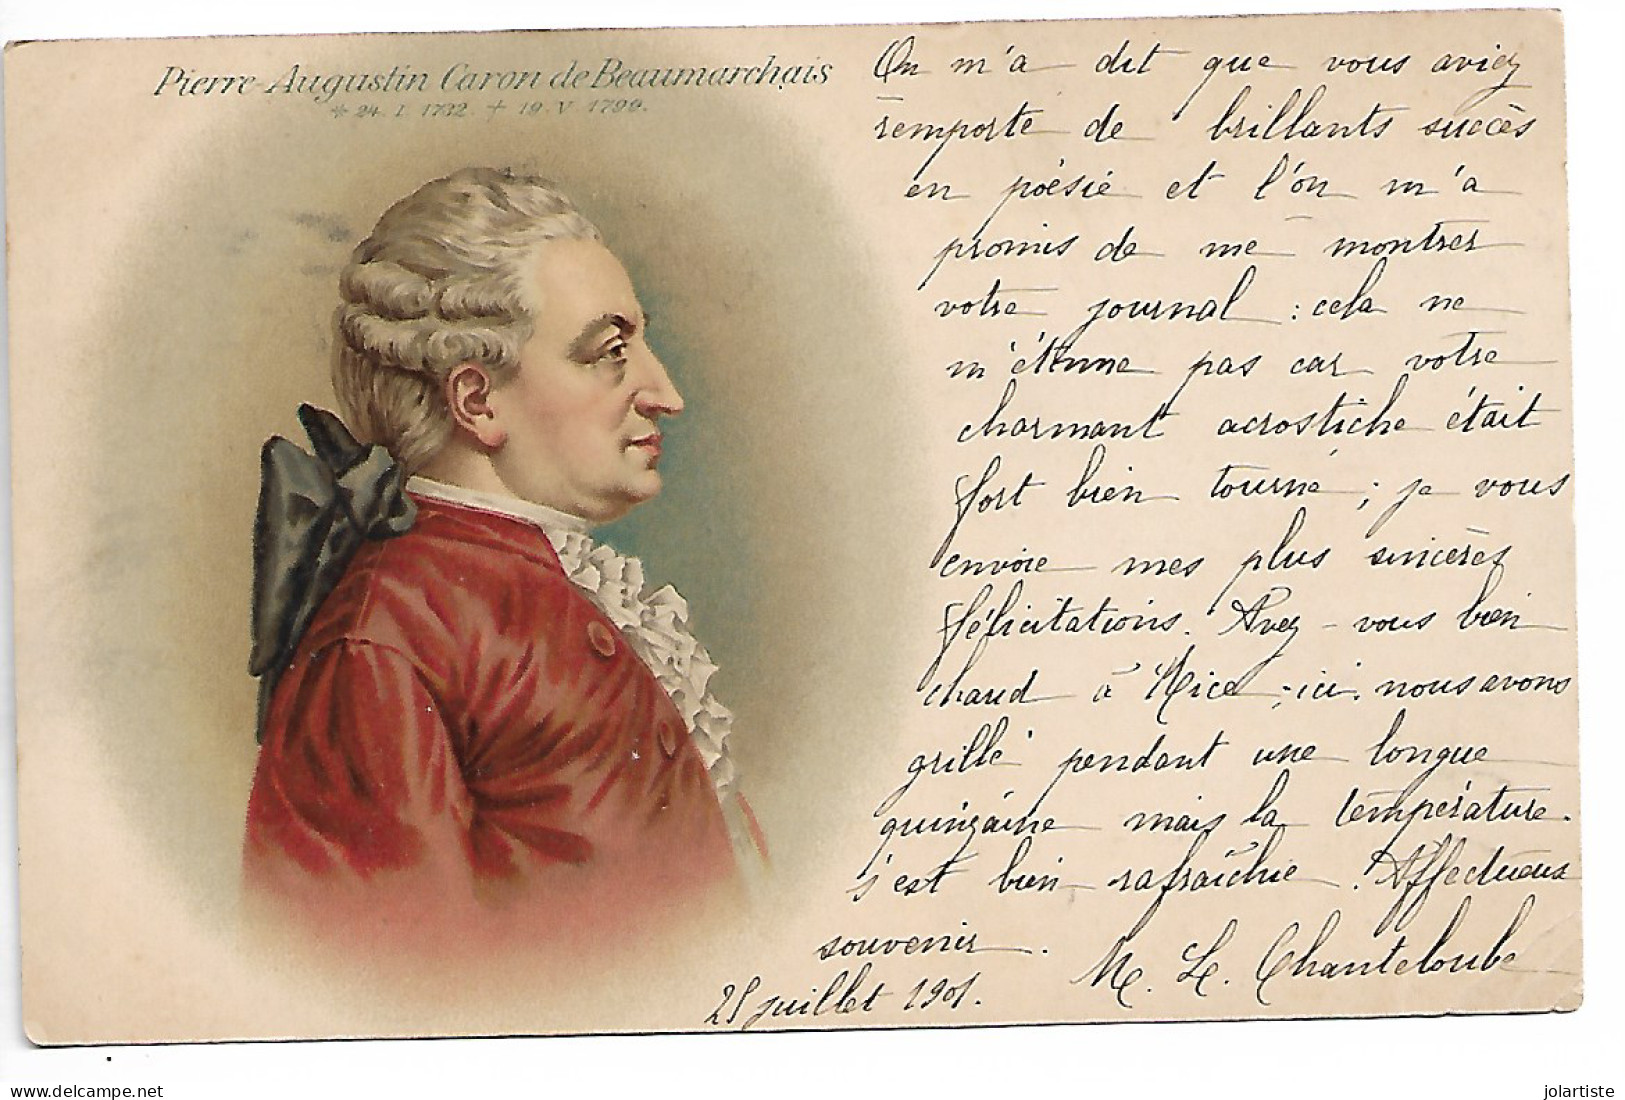 Pierre-Augustin Caron de Beaumarchais
* 24. I. 1732. + 19. V. 1799.
On m'a dit que vous aviez
remporté de brillants succès
en poésie et l'on m'a
promis de me montrer
votre journal : cela ne
m'étonne pas car votre
charmant acrostiche était
fort bien tourné ; je vous
envoie mes plus sincères
félicitations. Avez-vous bien
chaud à Nice ; ici, nous avons
grillé pendant une longue
quinzaine mais la température
s'est bien rafraîchie. Affectueux
souvenir.
M. L. Chanteloube
25 juillet 1901.
delcampe.net
jolartiste